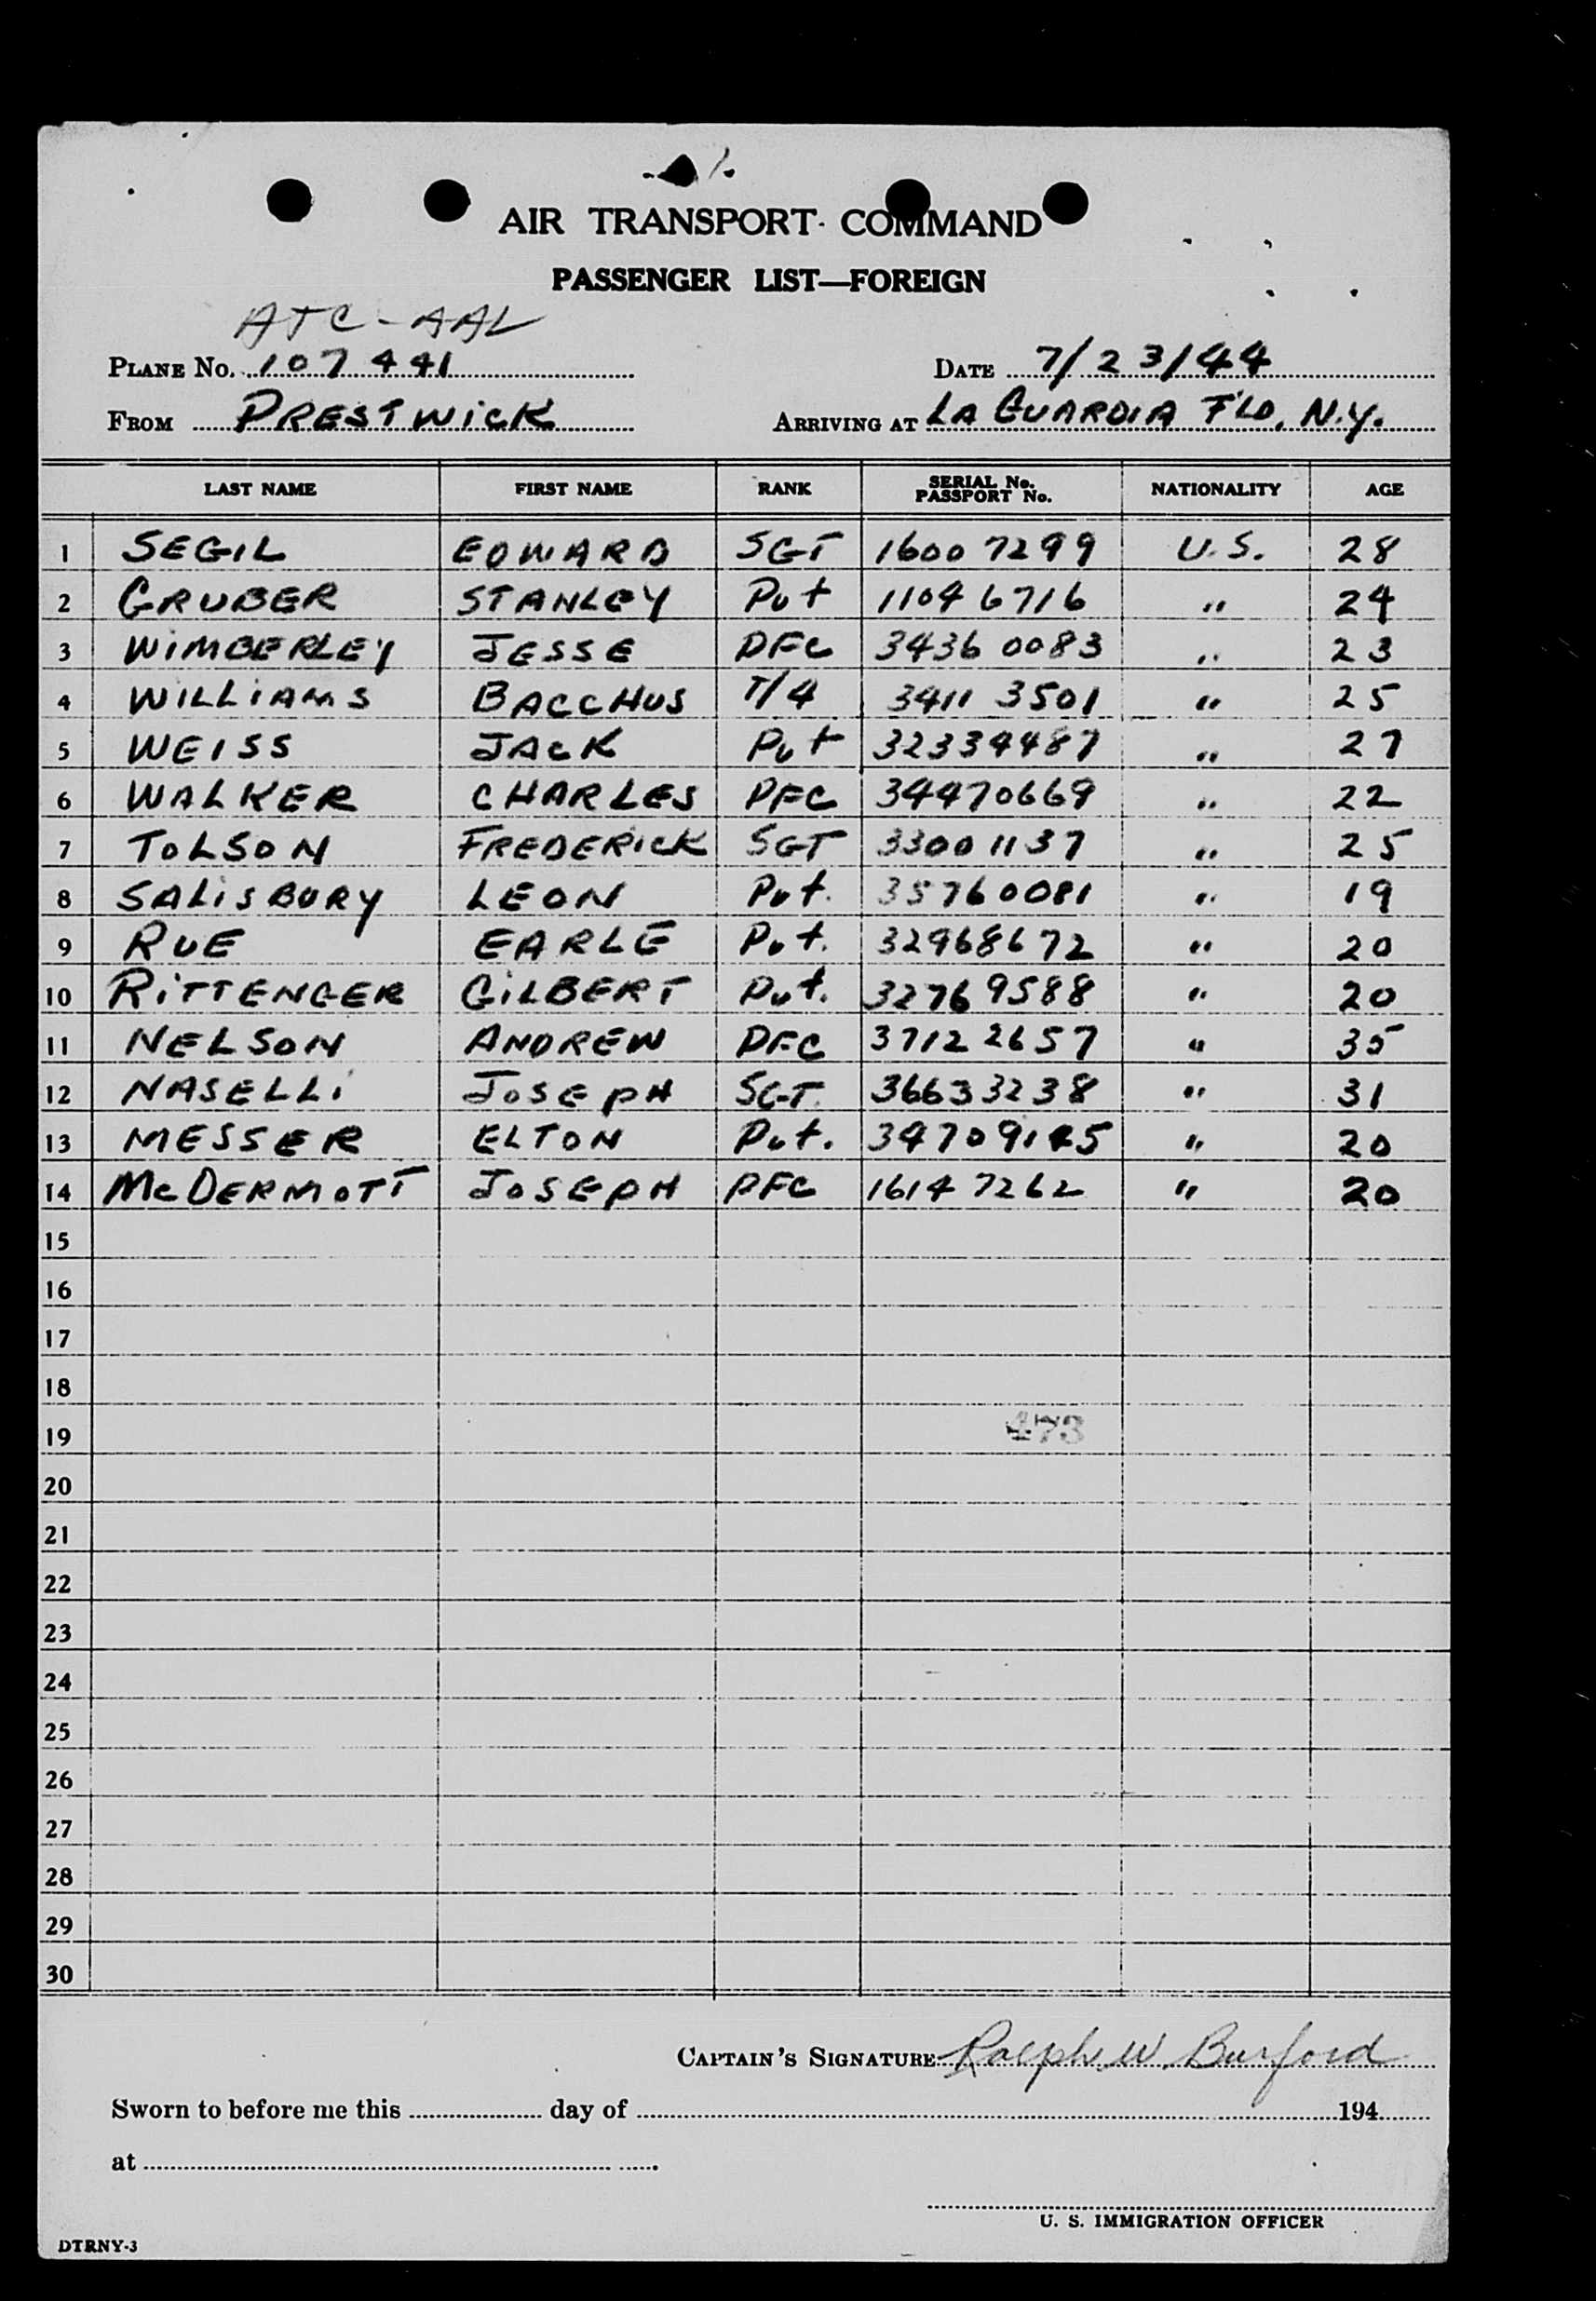 AIR TRANSPORT COMMAND
PASSENGER LIST—FOREIGN
ATC-AAL
PLANE No. 107441 DATE 7/23/44
FROM PRESTWICK ARRIVING AT LA GUARDIA FLD. N.Y.
LAST NAME FIRST NAME RANK SERIAL No. PASSPORT No. NATIONALITY AGE
1 SEGIL EDWARD SGT 16007299 U.S. 28
2 GRUBER STANLEY Pvt 11046716 " 24
3 WIMBERLEY JESSE PFC 34360083 " 23
4 WILLIAMS BACCHUS T/4 34113501 " 25
5 WEISS JACK Pvt 32334487 " 27
6 WALKER CHARLES PFC 34470669 " 22
7 TOLSON FREDERICK SGT 33001137 " 25
8 SALISBURY LEON Pvt. 35760081 " 19
9 RUE EARLE Pvt. 32968672 " 20
10 RITTENGER GILBERT Pvt. 32769588 " 20
11 NELSON ANDREW PFC 37122657 " 35
12 NASELLI JOSEPH SGT. 36633238 " 31
13 MESSER ELTON Pvt. 34709145 " 20
14 McDERMOTT JOSEPH PFC 16147262 " 20
15
16
17
18
473
19
20
21
22
23
24
25
26
27
28
29
30
CAPTAIN'S SIGNATURE Ralph W. Burford
Sworn to before me this day of 194
at
U. S. IMMIGRATION OFFICER
DTRNY-3